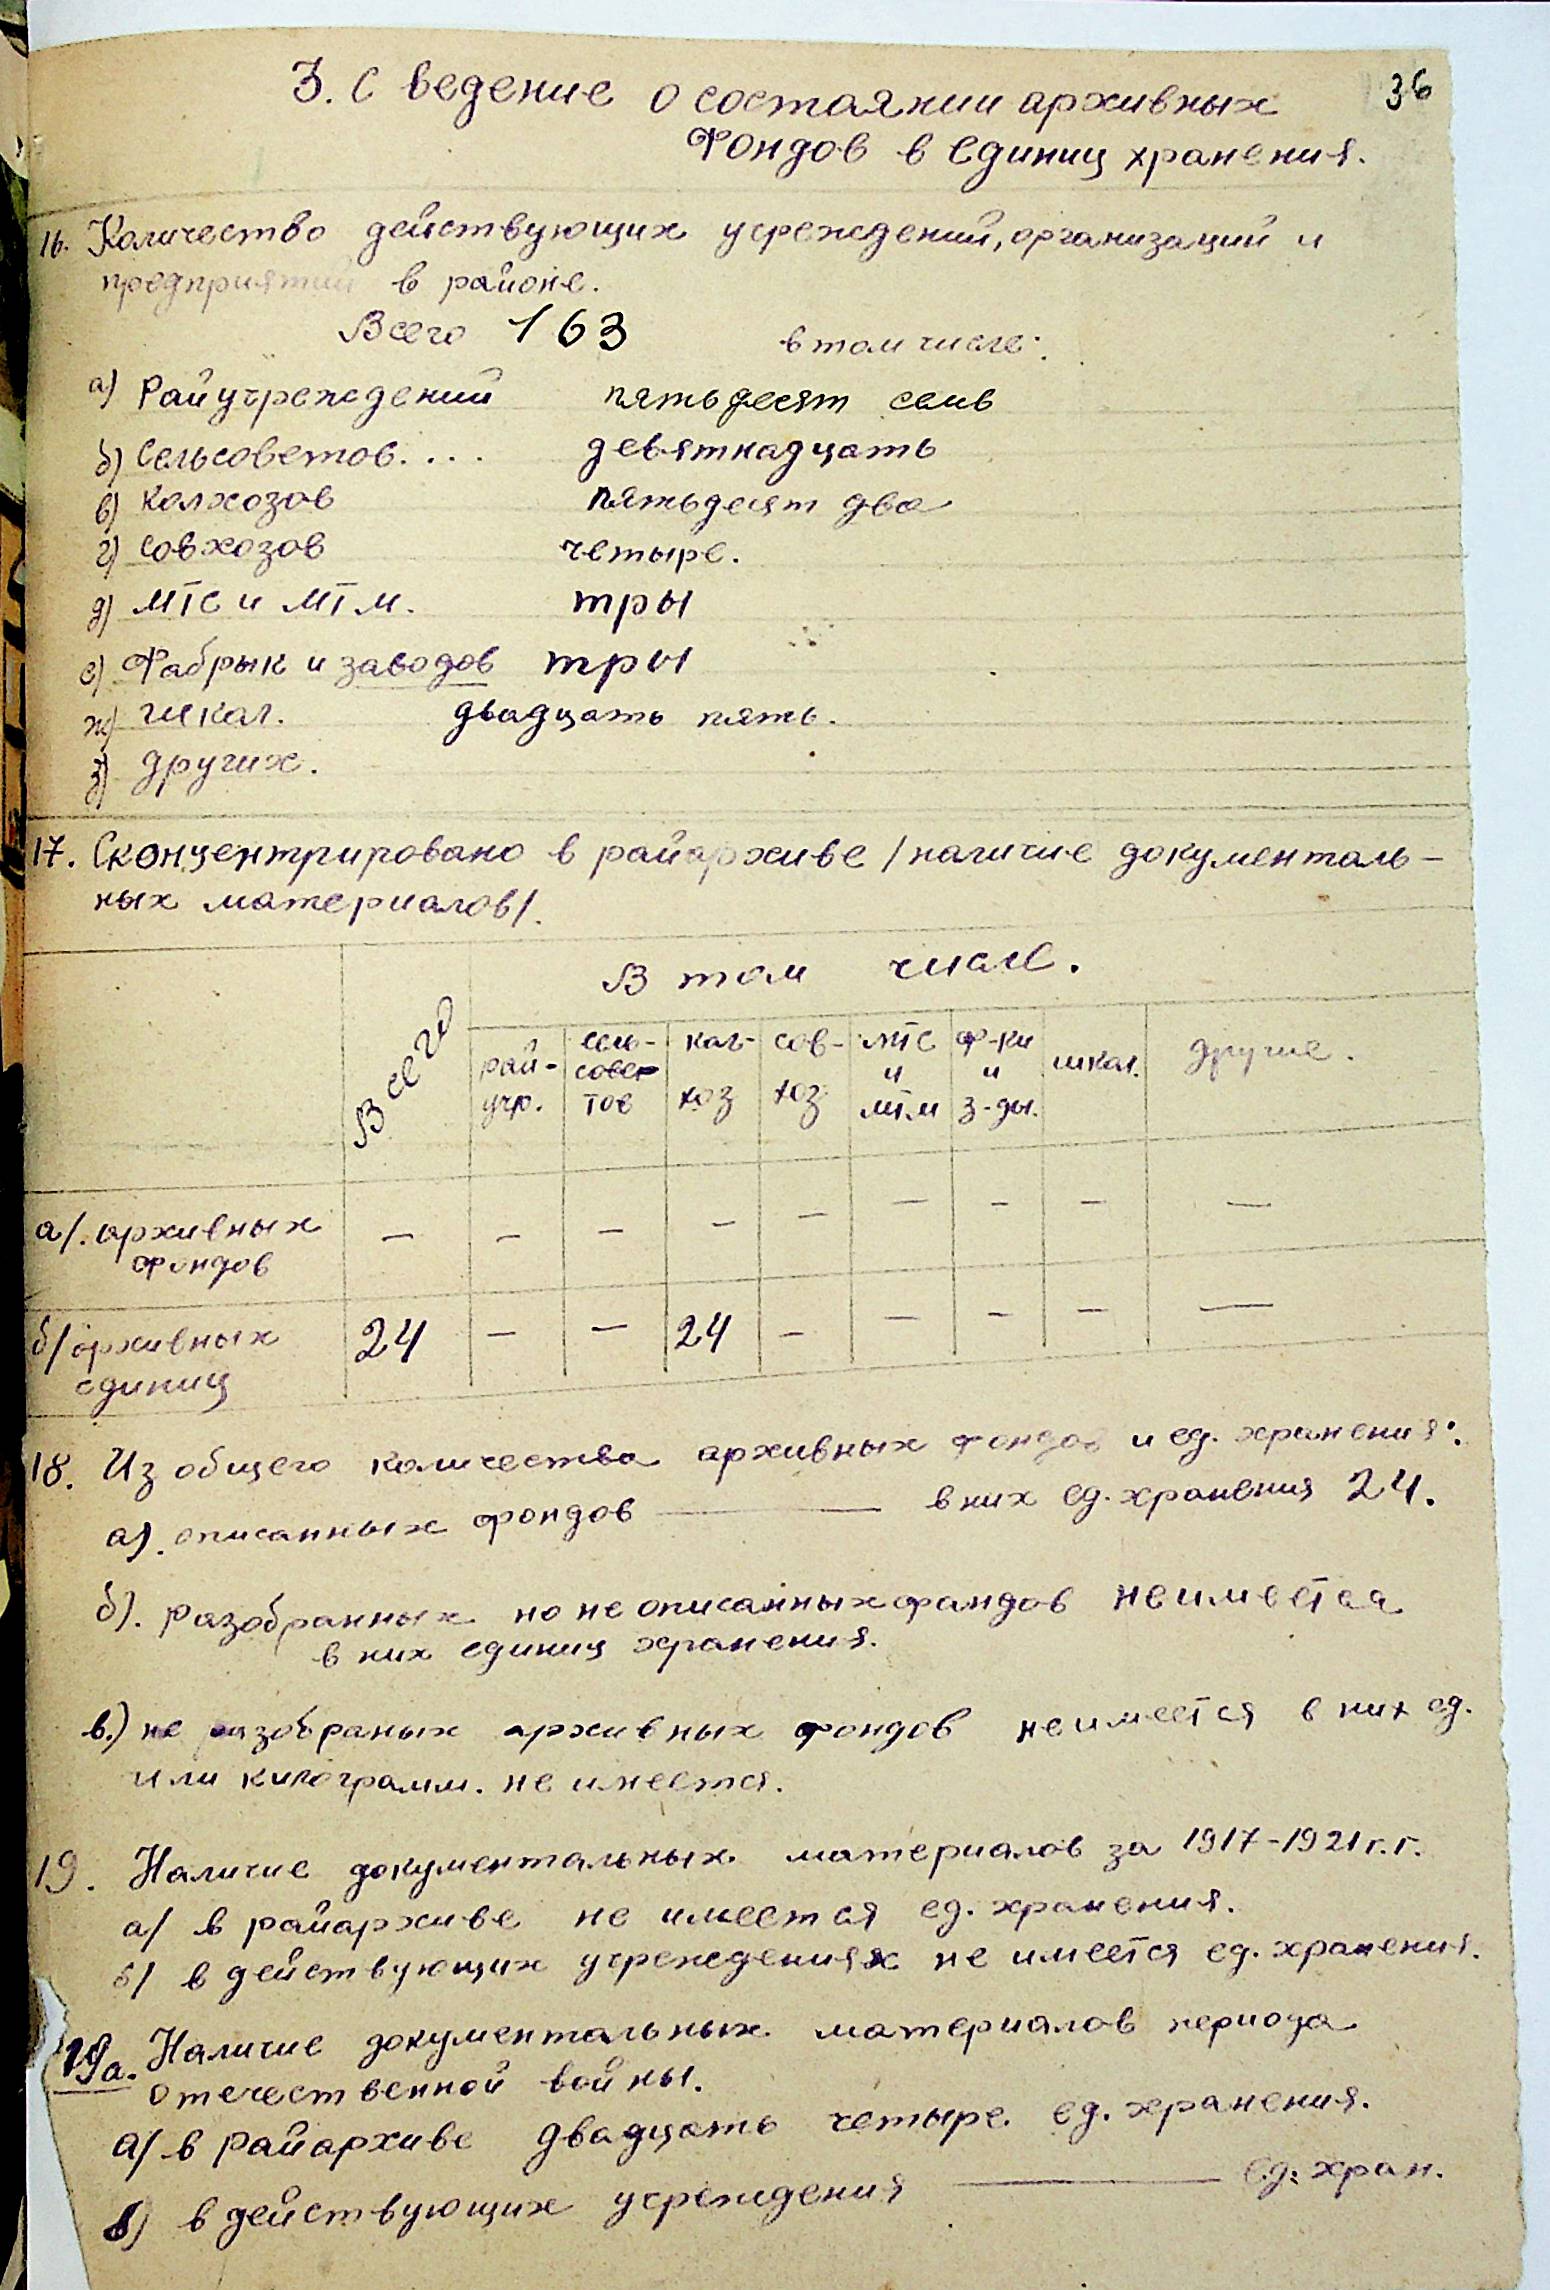 36
3. Сведение о состоянии архивных
Фондов в Единиц хранения.
16. Количество действующих учреждений, организаций и
предприятий в районе.
Всего 163 в том числе:
а) Райучреждений пятьдесят семь
б) Сельсоветов.... девятнадцать
в) Колхозов пятьдесят два
г) Совхозов четыре.
д) МТС и МТМ. тры
е) Фабрык и заводов тры
ж) школ. двадцать пять.
з) других.
17. Сконцентрировано в райархиве /наличие документаль-
ных материалов/.
Всего В том числе.
рай-
учр.
сель-
сове-
тов
кол-
хоз
сов-
хоз
МТС
и
МТМ
ф-ки
и
з-ды.
школ.
другие.
а/. архивных
фондов — — — — — — — — —
б/ архивных
единиц 24 — — 24 — — — — —
18. Из общего количества архивных фондов и ед. хранения:
а). описанных фондов ——— в них ед. хранения 24.
б). разобранных но не описанных фондов неимеется
в них единиц хранения.
в.) не разобраных архивных фондов неимеется в них ед.
или килограмм. не имеется.
19. Наличие документальных материалов за 1917-1921 г.г.
а/ в райархиве не имеется ед. хранения.
б/ в действующих учреждениях не имеется ед. хранения.
19а. Наличие документальных материалов периода
отечественной войны.
а/ в райархиве двадцать четыре ед. хранения.
в) в действующих учреждения ——— ед. хран.